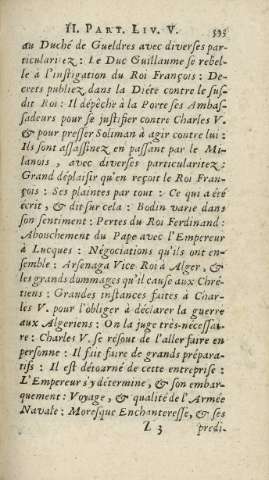 II. PART. LIV. V. 535
au Duché de Gueldres avec diverses par-
ticularitez : Le Duc Guillaume se rebel-
le à l'instigation du Roi François : De-
crets publiez dans la Diéte contre le sus-
dit Roi : Il dépêche à la Porte ses Ambas-
sadeurs pour se justifier contre Charles V.
& pour presser Soliman à agir contre lui :
Ils sont assassinez en passant par le Mi-
lanois , avec diverses particularitez :
Grand déplaisir qu'en reçoit le Roi Fran-
çois : Ses plaintes par tout : Ce qui a été
écrit, & dit sur cela : Bodin varie dans
son sentiment : Pertes du Roi Ferdinand :
Abouchement du Pape avec l'Empereur
à Lucques : Négociations qu'ils ont en-
semble : Arsenaga Vice Roi à Alger, &
les grands dommages qu'il cause aux Chré-
tiens : Grandes instances faites à Char-
les V. pour l'obliger à déclarer la guerre
aux Algeriens : On la juge très-necessai-
re : Charles V. se résout de l'aller faire en
personne : Il fait faire de grands prépara-
tifs : Il est détourné de cette entreprise :
L'Empereur s'y détermine, & son embar-
quement : Voyage, & qualité de l'Armée
Navale : Moresque Enchanteresse, & ses
Z 3 predi-